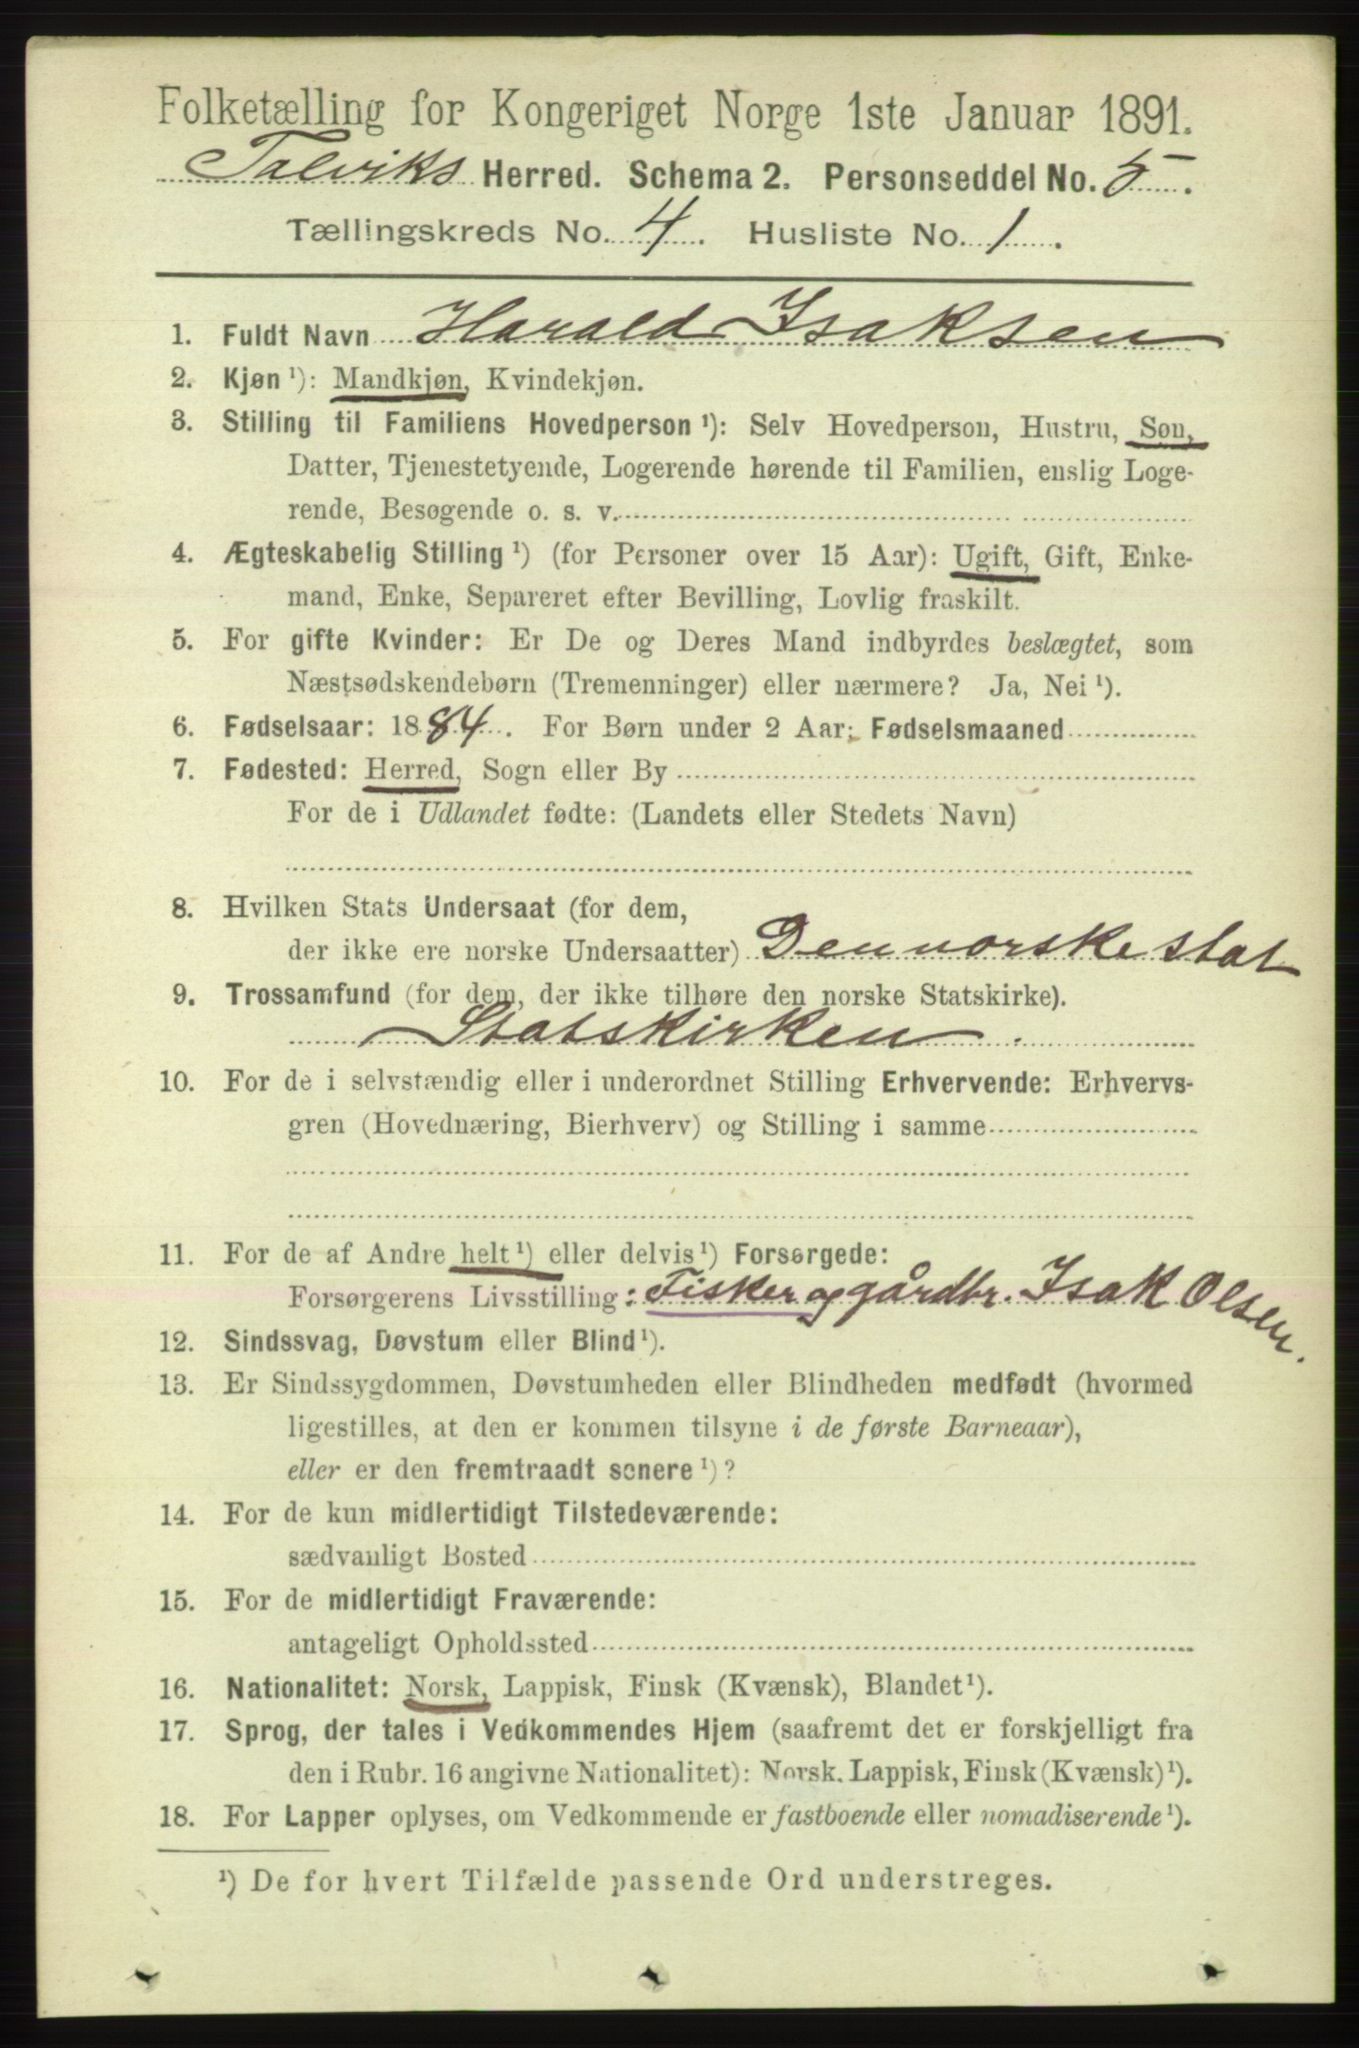 Folketælling for Kongeriget Norge 1ste Januar 1891.
Talviks Herred. Schema 2. Personseddel No. 5.
Tællingskreds No. 4. Husliste No. 1.
1. Fuldt Navn Harald Isaksen
2. Kjøn ¹): Mandkjøn, Kvindekjøn.
3. Stilling til Familiens Hovedperson ¹): Selv Hovedperson, Hustru, Søn,
Datter, Tjenestetyende, Logerende hørende til Familien, enslig Loge-
rende, Besøgende o. s. v.
4. Ægteskabelig Stilling ¹) (for Personer over 15 Aar): Ugift, Gift, Enke-
mand, Enke, Separeret efter Bevilling, Lovlig fraskilt.
5. For gifte Kvinder: Er De og Deres Mand indbyrdes beslægtet, som
Næstsødskendebørn (Tremenninger) eller nærmere? Ja, Nei ¹).
6. Fødselsaar: 1884. For Børn under 2 Aar: Fødselsmaaned
7. Fødested: Herred, Sogn eller By
For de i Udlandet fødte: (Landets eller Stedets Navn)
8. Hvilken Stats Undersaat (for dem,
der ikke ere norske Undersaatter) Den norske stat
9. Trossamfund (for dem, der ikke tilhøre den norske Statskirke).
Statskirken.
10. For de i selvstændig eller i underordnet Stilling Erhvervende: Erhvervs-
gren (Hovednæring, Bierhverv) og Stilling i samme
11. For de af Andre helt ¹) eller delvis ¹) Forsørgede:
Forsørgerens Livsstilling: Fisker og gårdbr. Isak Olsen.
12. Sindssvag, Døvstum eller Blind ¹).
13. Er Sindssygdommen, Døvstumheden eller Blindheden medfødt (hvormed
ligestilles, at den er kommen tilsyne i de første Barneaar),
eller er den fremtraadt senere ¹)?
14. For de kun midlertidigt Tilstedeværende:
sædvanligt Bosted
15. For de midlertidigt Fraværende:
antageligt Opholdssted
16. Nationalitet: Norsk, Lappisk, Finsk (Kvænsk), Blandet ¹).
17. Sprog, der tales i Vedkommendes Hjem (saafremt det er forskjelligt fra
den i Rubr. 16 angivne Nationalitet): Norsk, Lappisk, Finsk (Kvænsk) ¹).
18. For Lapper oplyses, om Vedkommende er fastboende eller nomadiserende ¹).
¹) De for hvert Tilfælde passende Ord understreges.